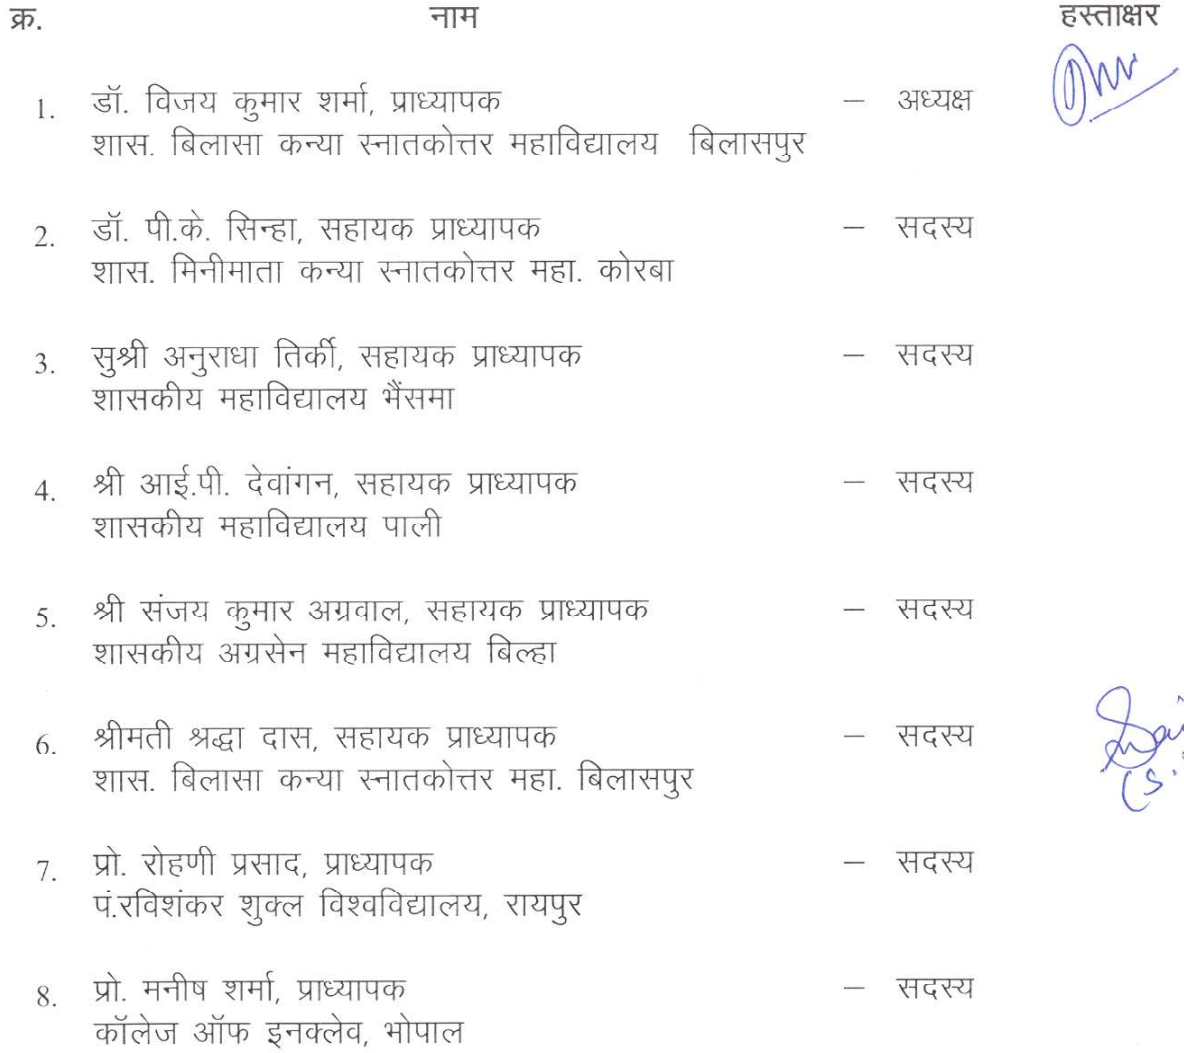 क्र. नाम हस्ताक्षर
1. डॉ. विजय कुमार शर्मा, प्राध्यापक – अध्यक्ष
शास. बिलासा कन्या स्नातकोत्तर महाविद्यालय बिलासपुर
2. डॉ. पी.के. सिन्हा, सहायक प्राध्यापक – सदस्य
शास. मिनीमाता कन्या स्नातकोत्तर महा. कोरबा
3. सुश्री अनुराधा तिर्की, सहायक प्राध्यापक – सदस्य
शासकीय महाविद्यालय भैंसमा
4. श्री आई.पी. देवांगन, सहायक प्राध्यापक – सदस्य
शासकीय महाविद्यालय पाली
5. श्री संजय कुमार अग्रवाल, सहायक प्राध्यापक – सदस्य
शासकीय अग्रसेन महाविद्यालय बिल्हा
6. श्रीमती श्रद्धा दास, सहायक प्राध्यापक – सदस्य
शास. बिलासा कन्या स्नातकोत्तर महा. बिलासपुर
(S.
7. प्रो. रोहणी प्रसाद, प्राध्यापक – सदस्य
पं.रविशंकर शुक्ल विश्वविद्यालय, रायपुर
8. प्रो. मनीष शर्मा, प्राध्यापक – सदस्य
कॉलेज ऑफ इनक्लेव, भोपाल